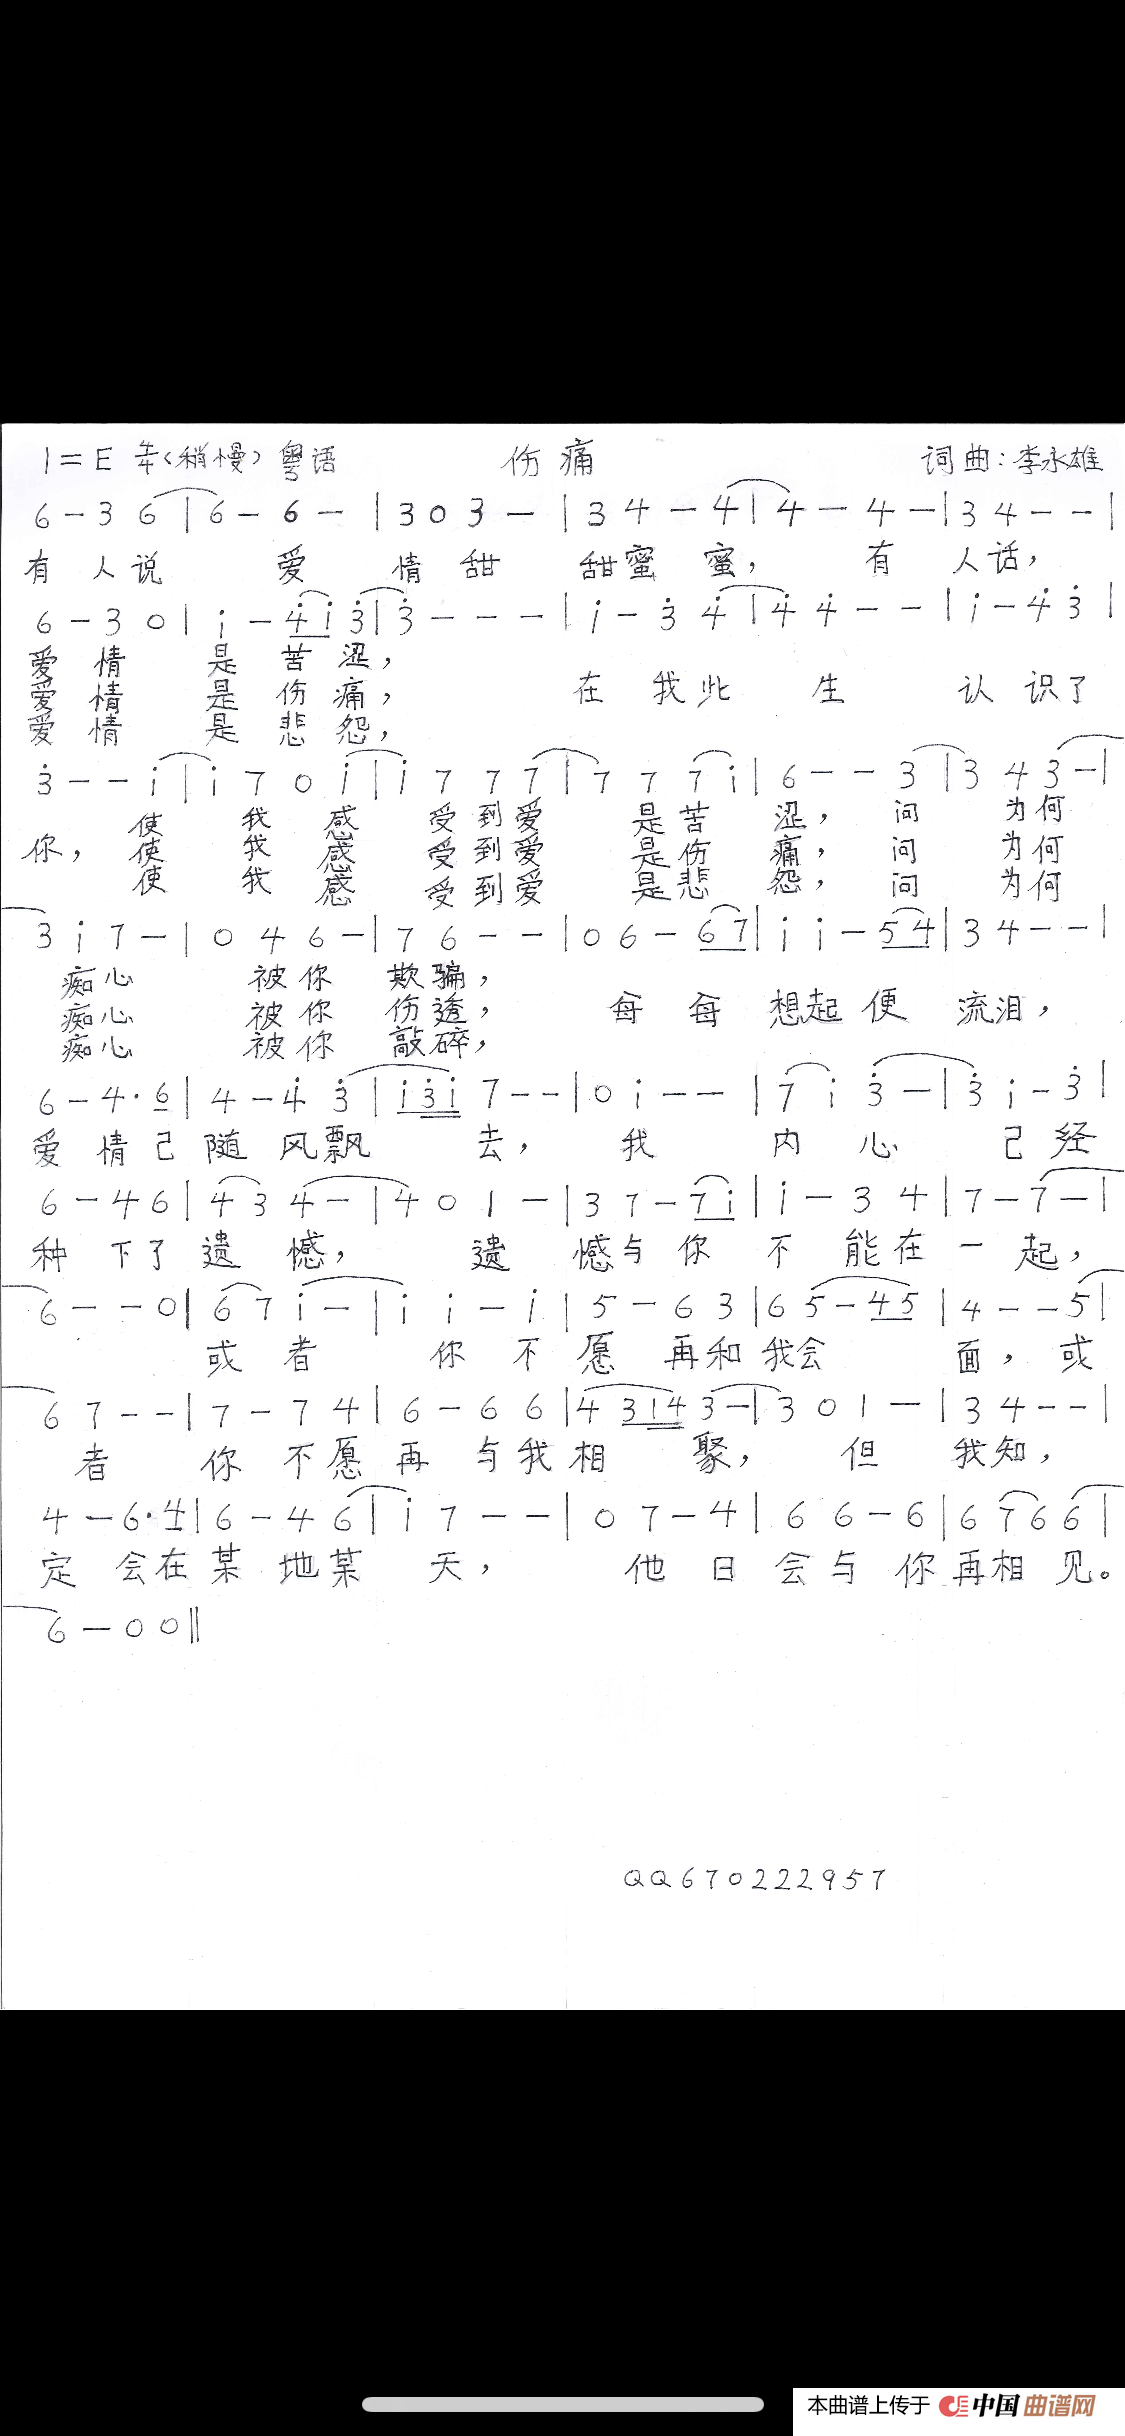 1=E 4/4(稍慢) 粤语 伤痛 词曲：李永雄
6 – 3 6 | 6 – 6 – | 3 0 3 – | 3 4 – 4 | 4 – 4 – | 3 4 – – |
有 人 说 爱 情 甜 甜 蜜 蜜， 有 人 话，
6 – 3 0 | i – 4̇ i 3̇ | 3̇ – – – | i – 3̇ 4̇ | 4̇ 4̇ – – | i – 4̇ 3̇ |
爱 情 是 苦 涩，
爱 情 是 伤 痛， 在 我 此 生 认 识 了
爱 情 是 悲 怨，
3̇ – – i | i 7 0 i | i 7 7 7 | 7 7 7 i | 6 – – 3 | 3 4 3 – |
使 我 感 受 到 爱 是 苦 涩， 问 为 何
你， 使 我 感 受 到 爱 是 伤 痛， 问 为 何
使 我 感 受 到 爱 是 悲 怨， 问 为 何
3 i 7 – | 0 4 6 – | 7 6 – – | 0 6 – 6 7 | i i – 5 4 | 3 4 – – |
痴 心 被 你 欺 骗，
痴 心 被 你 伤 透， 每 每 想 起 便 流 泪，
痴 心 被 你 敲 碎，
6 – 4· 6 | 4 – 4̇ 3̇ | i 3̇ i 7 – – | 0 i – – | 7 i 3̇ – | 3̇ i – 3̇ |
爱 情 己 随 风 飘 去， 我 内 心 己 经
6 – 4 6 | 4 3 4 – | 4 0 1 – | 3 7 – 7 i | i – 3 4 | 7 – 7 – |
种 下 了 遗 憾， 遗 憾 与 你 不 能 在 一 起，
6 – – 0 | 6 7 i – | i i – i | 5 – 6 3 | 6 5 – 4 5 | 4 – – 5 |
或 者 你 不 愿 再 和 我 会 面， 或
6 7 – – | 7 – 7 4 | 6 – 6 6 | 4 3 1 4 3 – | 3 0 1 – | 3 4 – – |
者 你 不 愿 再 与 我 相 聚， 但 我 知，
4 – 6· 4 | 6 – 4 6 | i 7 – – | 0 7 – 4 | 6 6 – 6 | 6 7 6 6 |
定 会 在 某 地 某 天， 他 日 会 与 你 再 相 见。
6 – 0 0 ‖
QQ670222957
本曲谱上传于 中国曲谱网